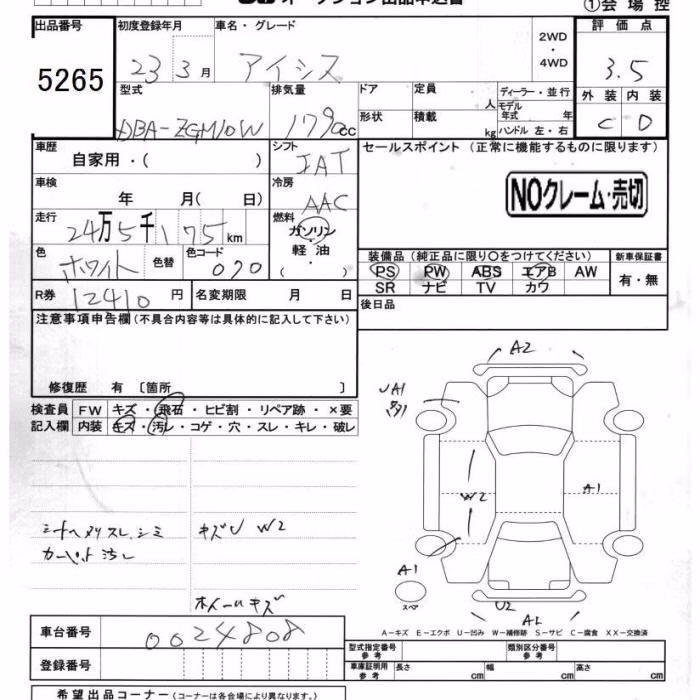 オークション出品申込書
①会場控
出品番号 初度登録年月 車名・グレード 2WD・4WD 評価点
5265 23 3月 アイシス 3.5
型式 排気量 ドア 定員 人 ディーラー・並行 外装 内装
DBA-ZGM10W 1790cc 形状 積載 kg モデル年式 年 ハンドル 左・右 C D
車歴 シフト セールスポイント (正常に機能するものに限ります)
自家用・( ) IAT
車検 冷房 NOクレーム・売切
年 月( 日) AAC
走行 燃料
24万5千175km ガソリン
軽油
・( )
色 色替 色コード 装備品(純正品に限り〇をつけてください) 新車保証書
ホワイト 070 PS PW ABS エアB AW 有・無
SR ナビ TV カワ
R券 12410円 名変期限 月 日 後日品
注意事項申告欄(不具合内容等は具体的に記入して下さい)
修復歴 有 〔箇所 〕
検査員 FW キズ・飛石・ヒビ割・リペア跡・×要
記入欄 内装 キズ・汚レ・コゲ・穴・スレ・キレ・破レ
A2
A1
W2 A1
シートヘタリスレ、シミ キズU W2
カーペット汚レ
A1
スペア
ホイールキズ
U2
A-キズ E-エクボ U-凹み W-補修跡 S-サビ C-腐食 XX-交換済
車台番号 0024808
型式指定番号 参考 類別区分番号 参考
登録番号 車庫証明用 参考 長さ cm 幅 cm 高さ cm
希望出品コーナー(コーナーは各会場により異なります。)